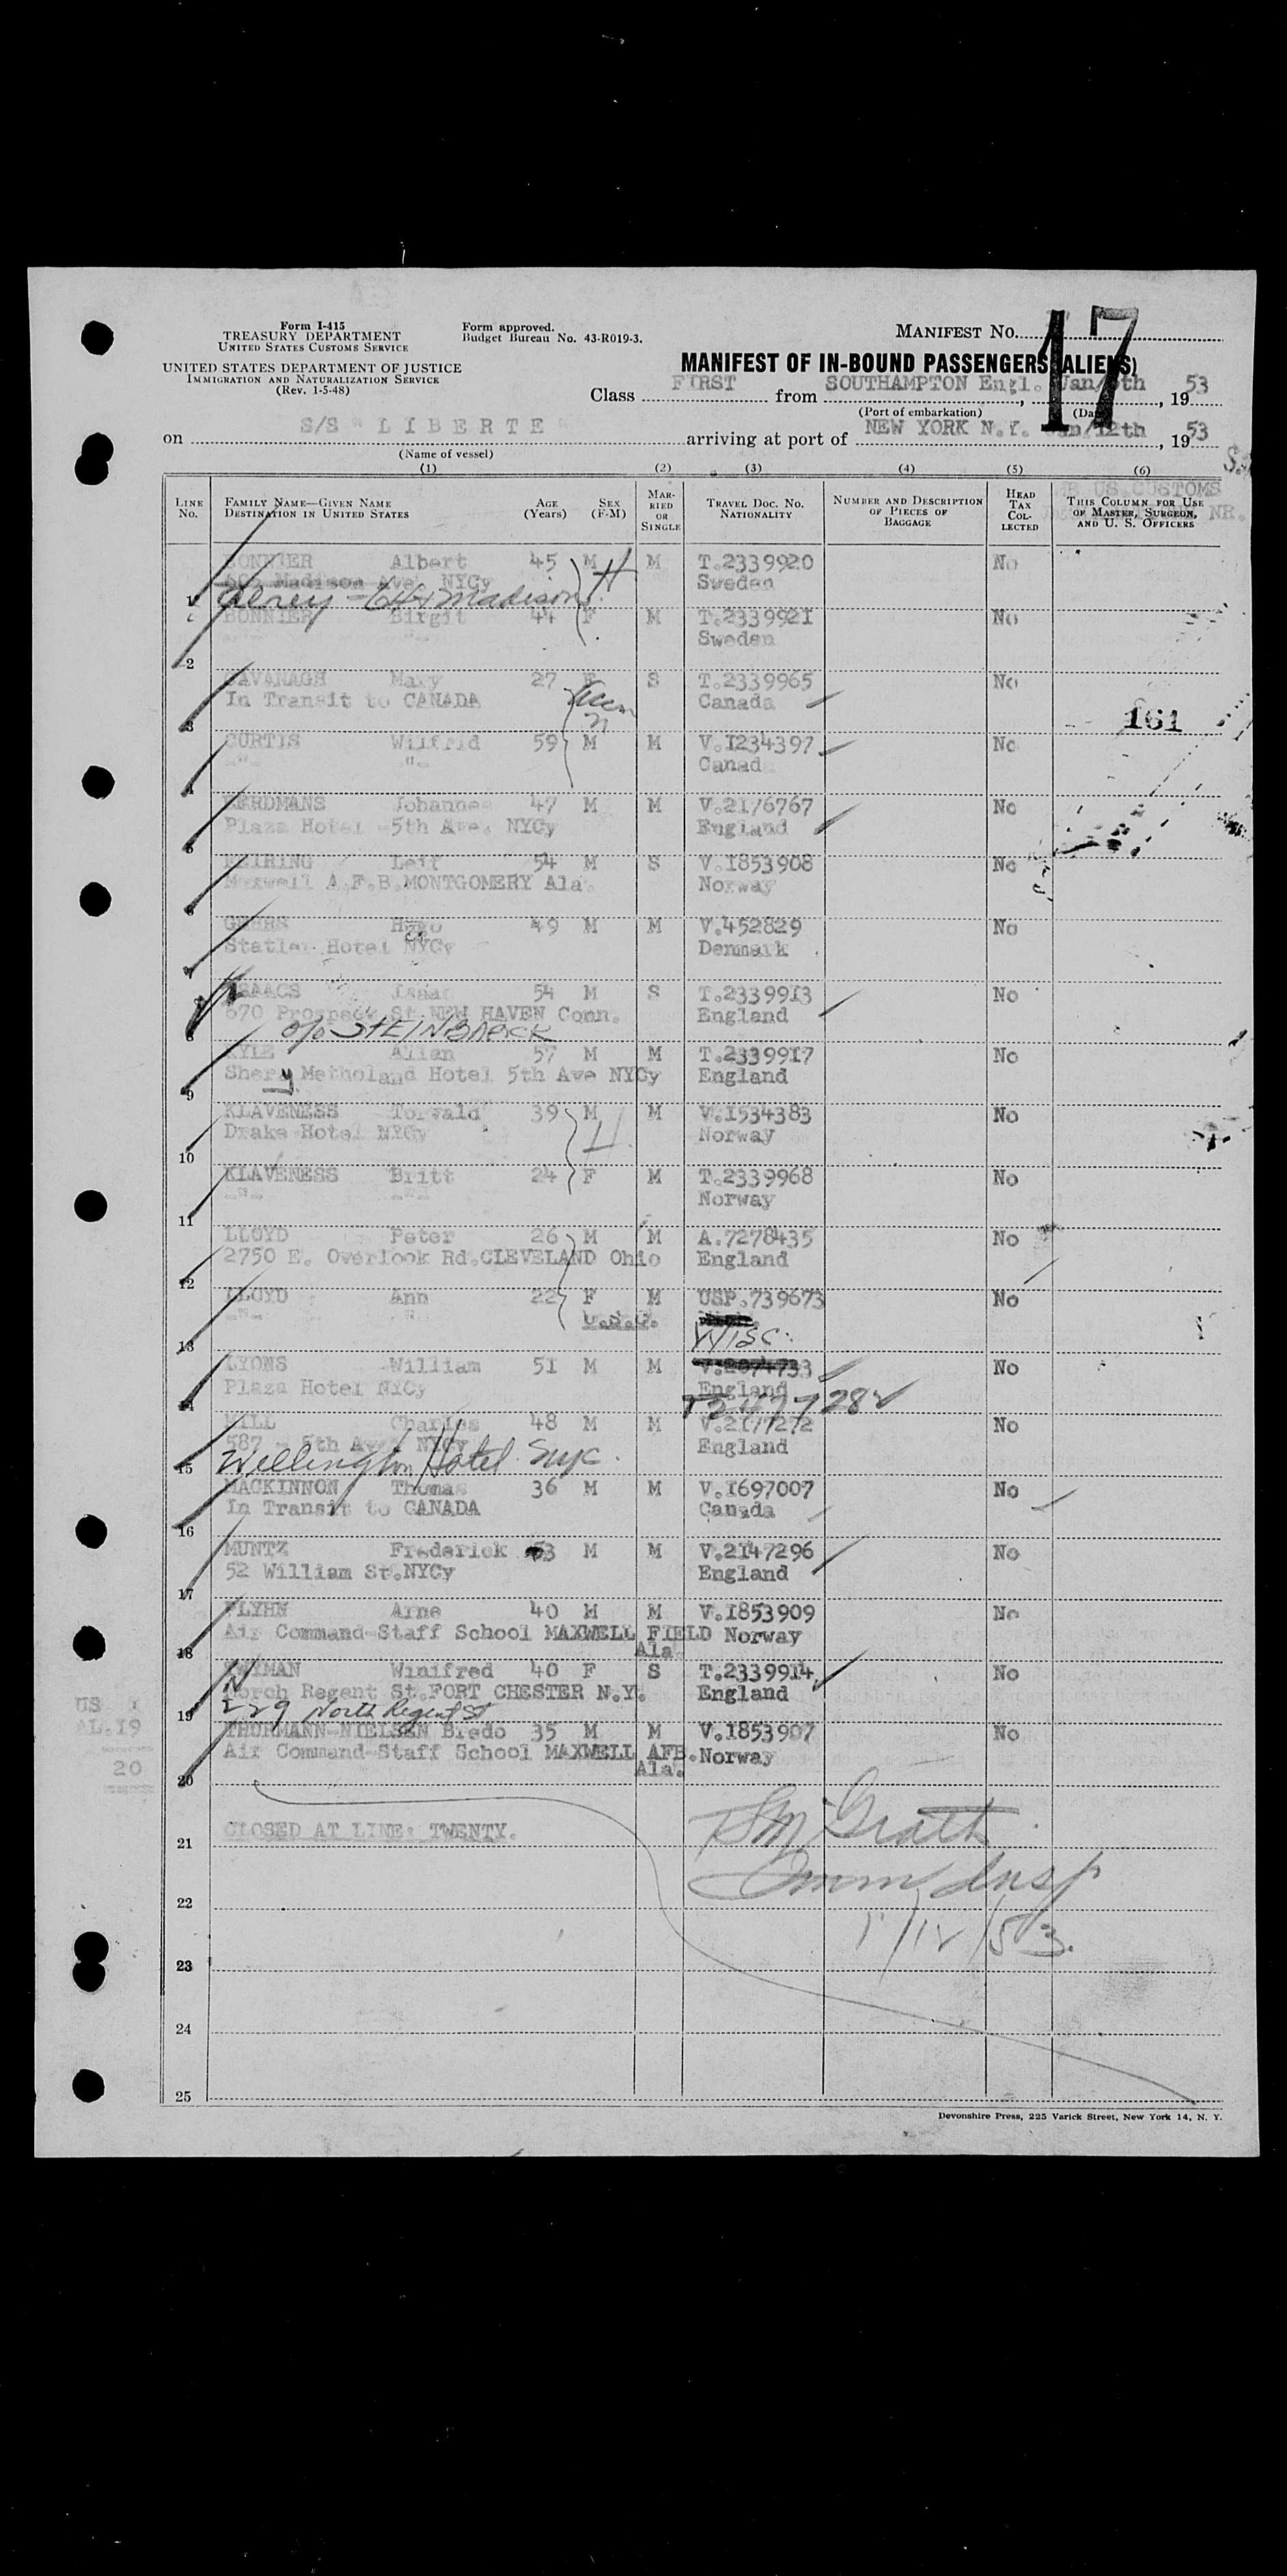 Form I-415
TREASURY DEPARTMENT
UNITED STATES CUSTOMS SERVICE
UNITED STATES DEPARTMENT OF JUSTICE
IMMIGRATION AND NATURALIZATION SERVICE
(Rev. 1-5-48)
Form approved.
Budget Bureau No. 43-R019-3.
MANIFEST NO. 17
MANIFEST OF IN-BOUND PASSENGERS (ALIENS)
Class FIRST from SOUTHAMPTON Engl., Jan/ th, 1953
(Port of embarkation) (Date)
on S/S " LIBERTE " arriving at port of NEW YORK N.Y. Jan/12th, 1953
(Name of vessel)
(1) (2) (3) (4) (5) (6)
US CUSTOMS
NR.
LINE NO. FAMILY NAME—GIVEN NAME DESTINATION IN UNITED STATES AGE (Years) SEX (F-M) MARRIED OR SINGLE TRAVEL DOC. NO. NATIONALITY NUMBER AND DESCRIPTION OF PIECES OF BAGGAGE HEAD TAX COLLECTED THIS COLUMN FOR USE OF MASTER, SURGEON, AND U. S. OFFICERS
BONNIER Albert 45 M M T.2339920 No
605 Madison Ave. NYCy Sweden
1 Madison
BONNIER Birgit 44 F M T.2339921 No
-"- -"- Sweden
2
CAVANAGH Mary 27 F S T.2339965 No
In Transit to CANADA Canada
3 161
CURTIS Wilfrid 59 M M V.1234397 No
-"- -"- Canad
4
EERDMANS Johannes 47 M M V.2176767 No
Plaza Hotel -5th Ave. NYCy England
5
FEIRING Leif 54 M S V.1853908 No
Maxwell A.F.B.MONTGOMERY Ala. Norway
6
GEERS Hugo 49 M M V.452829 No
Statler Hotel NYCy Denmark
7
ISAACS Isaac 54 M S T.2339913 No
670 Prospect St.NEW HAVEN Conn. England
8 c/o STEINBACK
KYLE Allan 57 M M T.2339917 No
Shery Metholand Hotel 5th Ave NYCy England
9
KLAVENESS Torvald 39 M M V.1534383 No
Drake Hotel NYCy Norway
10
KLAVENESS Britt 24 F M T.2339968 No
-"- -"- Norway
11
LLOYD Peter 26 M M A.7278435 No
2750 E. Overlook Rd.CLEVELAND Ohio England
12
LLOYD Ann 22 F M USP.739673 No
-"- -"- U.S.C.
13 Wisc.
LYONS William 51 M M V.2074733 No
Plaza Hotel NYCy England
14
MILL Charles 48 M M V.2177272 No
587 - 5th Ave. NYCy England
15 Wellington Hotel NYC.
MACKINNON Thomas 36 M M V.1697007 No
In Transit to CANADA Canada
16
MUNTZ Frederick 53 M M V.2147296 No
52 William St.NYCy England
17
FLYHN Arne 40 M M V.1853909 No
Air Command-Staff School MAXWELL FIELD Norway
18 Ala.
Winifred 40 F S T.2339914 No
North Regent St.FORT CHESTER N.Y. England
19 229 North Regent St
THURMANN-NIELSEN Bredo 35 M M V.1853907 No
Air Command-Staff School MAXWELL AFB. Norway
20 Ala.
US 1
AL.19
20
CLOSED AT LINE: TWENTY.
21
22 Imm Insp
23 1/12/53.
24
25
Devonshire Press, 225 Varick Street, New York 14, N. Y.